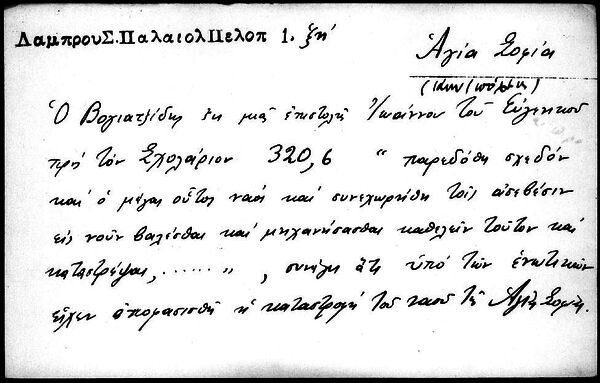 Λαμπρου Σ. Παλαιολ Πελοπ 1. ξη'
Ἁγία Σοφία
(Κων/πόλεως)
Ὁ Βογιατζίδης ἐκ μιᾶς ἐπιστολῆς Ἰωάννου τοῦ Εὐγενικοῦ
πρὸς τὸν Σχολάριον 320,6 " παρεδόθη σχεδὸν
καὶ ὁ μέγας οὗτος ναὸς καὶ συνεχωρήθη τοῖς ἀσεβέσιν
εἰς νοῦν βαλέσθαι καὶ μηχανήσασθαι καθελεῖν τοῦτον καὶ
καταστρέψαι, ...... ", συνάγει ὅτι ὑπὸ τῶν ἑνωτικῶν
εἶχεν ἀποφασισθῆ ἡ καταστροφὴ τοῦ ναοῦ τῆς Ἁγίας Σοφίας.